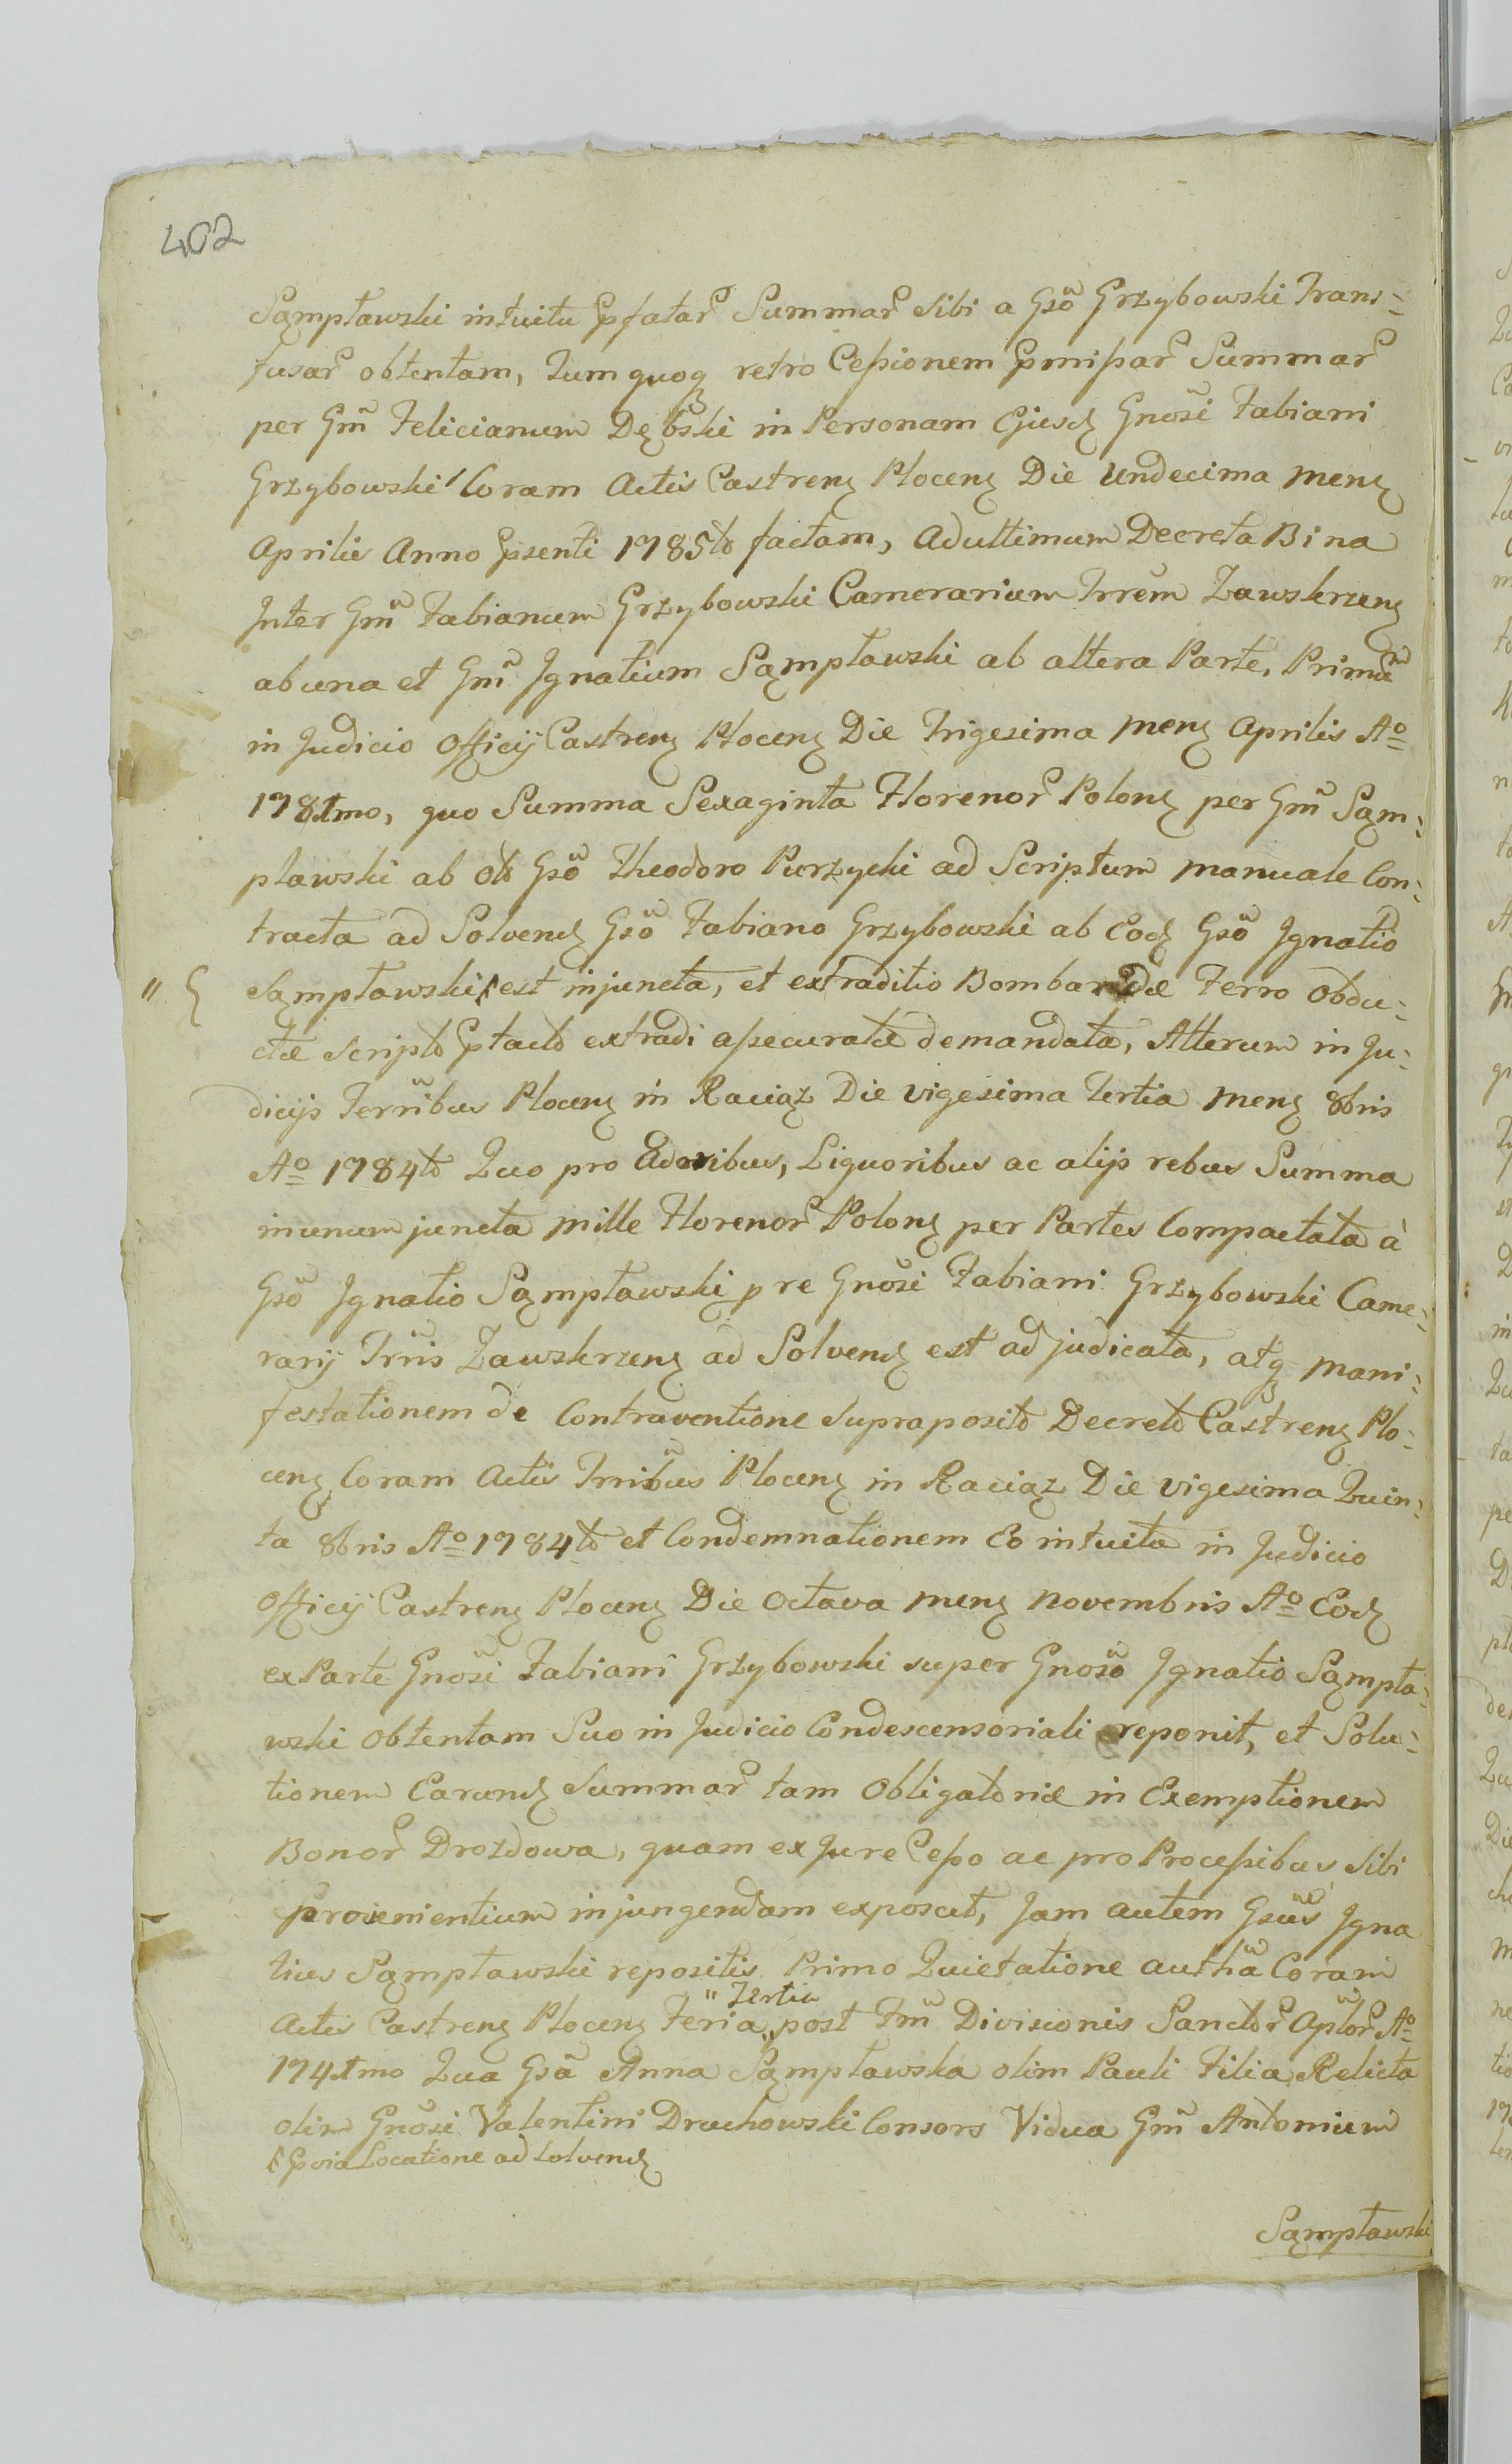 402
Sąmpławski intuitu Pfatar Summar sibi a Gsõ Grzybowski Trans=
fusar obtentam, Tum quoq retro Cessionem Pmissar Summar
per Gm̃ Felicianum Dębski in Personam Ejusd Gnosi Fabiani
Grzybowski Coram Actis Castren Plocen Die Undecima Men
Aprilis Anno Psenti 1785to factam, Ad ultimum Decreta Bina
Inter Gm̃ Fabianum Grzybowski Camerarium Trrem Zawskrzen
ab una et Gm̃ Ignatium Sąmpławski ab altera Parte, Primũ
in Judicio Officij Castren Plocen Die Trigesima Men Aprilis Ao
1781mo, quo Summa Sexaginta Florenor Polon per Gm̃ Sąm=
pławski ab olo Gsõ Theodoro Purzycki ad Scriptum manuale Con=
tracta ad Solvend Gsõ Fabiano Grzybowski ab Eod Gsõ Ignatio
Sąmpławski est injuncta, et extraditio Bombardæ Ferro Obdu=
ctæ Scripto Ptacto extradi assecuratæ demandata, Alterum in Ju=
dicijs Terribus Plocen in Raciąz Die vigesima Tertia Men 8bris
Ao 1784to Quo pro Edoribus, Liquoribus ac alijs rebus Summa
in unum juncta Mille Florenor Polon per Partes Compactata à
Gsõ Ignatio Sąmpławski p re Gnosi Fabiani Grzybowski Came=
rarij Trris Zawskrzen ad Solvend est adjudicata, atq Mani=
festationem de Contraventione Supraposito Decreto Castren Plo=
cen Coram Actis Trribus Plocen in Raciąz Die vigesima Quin=
ta 8bris Ao 1784to et Condemnationem Eo intuitu in Judicio
Officij Castren Plocen Die Octava Men Novembris Ao Eod
ex Parte Gnosi Fabiani Grzybowski super Gnoso Ignatio Sąmpła=
wski Obtentam Suo in Judicio Condescensoriali reponit, et Solu=
tionem Earund Summar tam Obligatoriæ in Exemptionem
Bonor Drozdowa, quam ex Jure Cesso ac pro Processibus Sibi
provenientium injungendam exposcit, Jam autem Gsus Igna
tius Sąmpławski repositis Primo Quietatione autha Coram
" Tertia
Actis Castren Plocen Feria " post Fm̃ Divisionis Sanctor Aplor Ao
1741mo Qua Gsa Anna Sąmpławska olim Pauli Filia, Relicta
olim Gnosi Valentini Druchowski Consors Vidua Gm̃ Antonium
Pvia Locatione ad Solvend
Sąmpławski